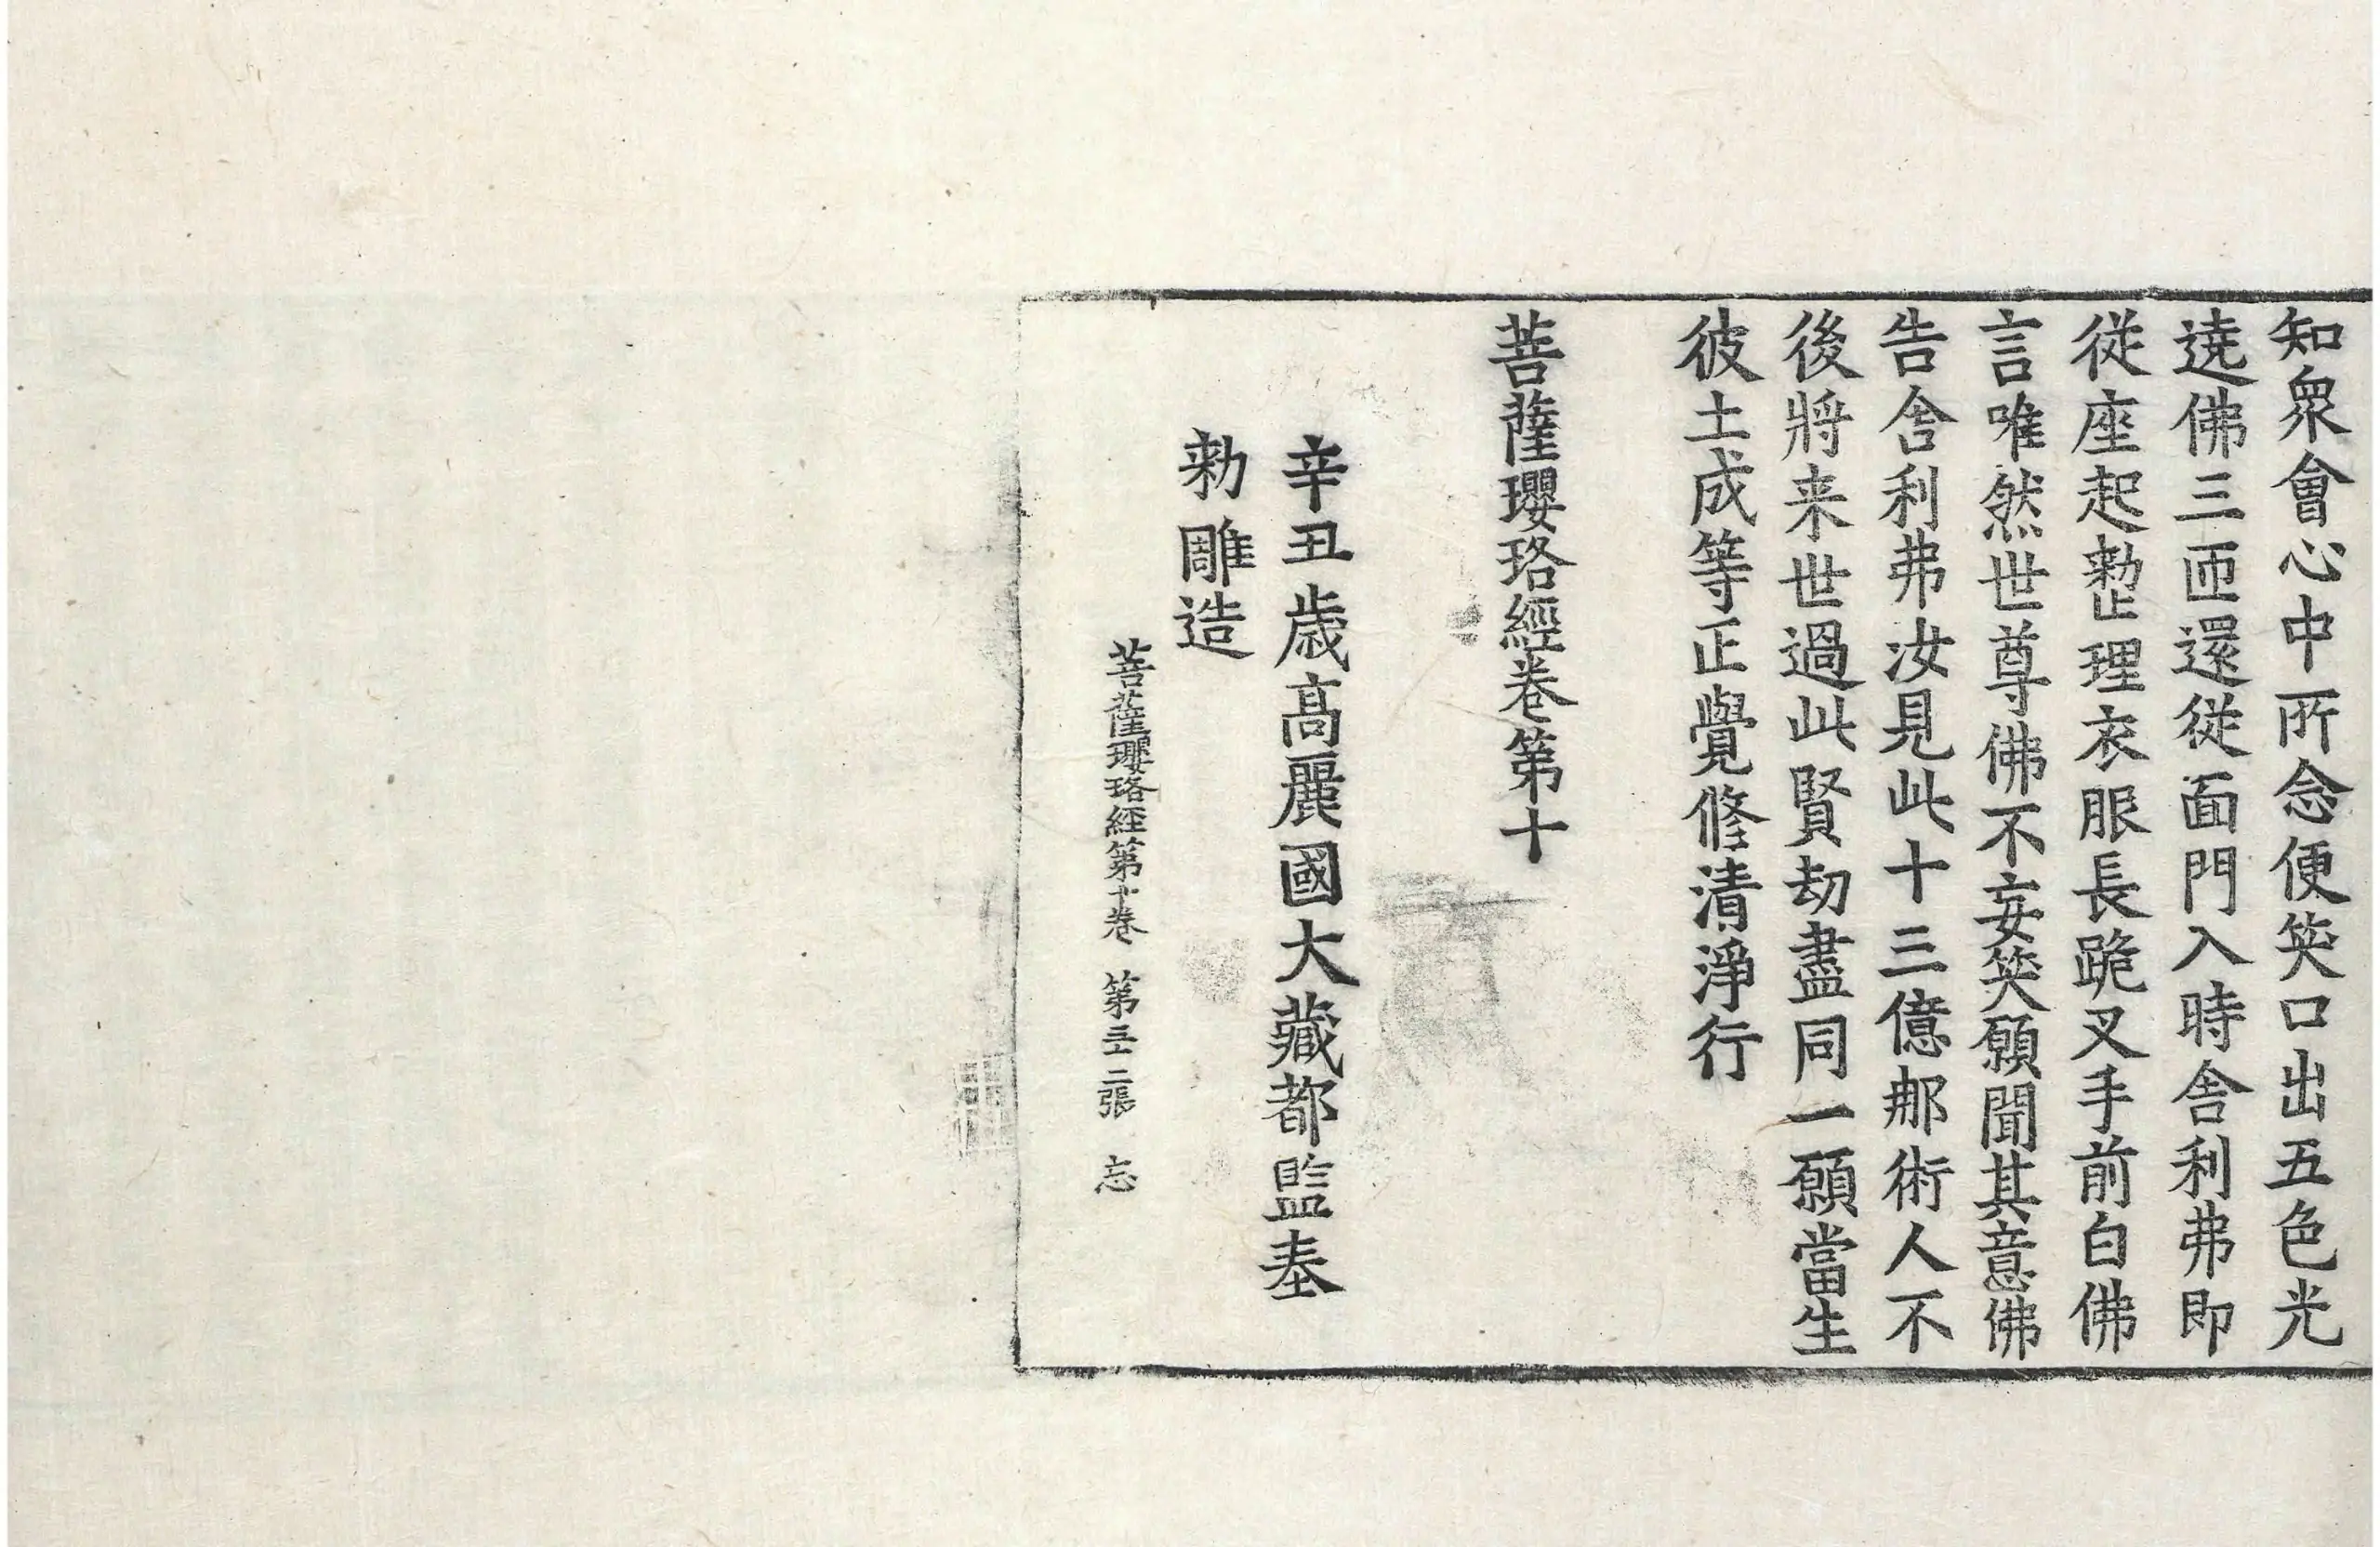 知衆會心中所念便笑口出五色光
遶佛三匝還從面門入時舍利弗即
從座起整理衣服長跪叉手前白佛
言唯然世尊佛不妄笑願聞其意佛
告舍利弗汝見此十三億那術人不
後將来世過此賢劫盡同一願當生
彼土成等正覺修清淨行
菩薩瓔珞經卷第十
辛丑歳高麗國大藏都監奉
勑雕造
菩薩瓔珞經第十卷 第三十二張 忘